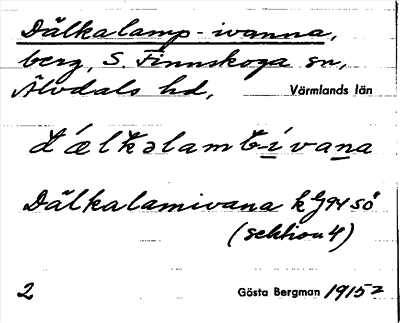 Dälkalamp-ivanna,
berg, S. Finnskoga sn,
Älvdals hd, Värmlands län
dælkalambivana
Dälkalamivana kG94 sö
(sektion 4)
2 Gösta Bergman 1915